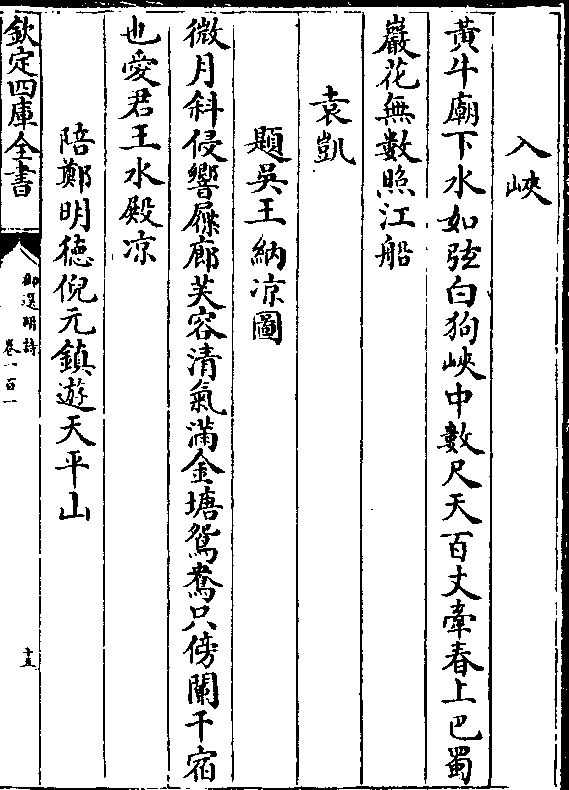 入峽
黃牛廟下水如弦白狗峽中數尺天百丈牽春上巴蜀
巖花無數照江船
袁凱
題吳王納凉圖
微月斜侵響屧廊芙容清氣滿金塘鴛鴦只傍闌干宿
也愛君王水殿凉
陪鄭明徳倪元鎮遊天平山
欽定四庫全書
御選明詩
卷一百一
十五